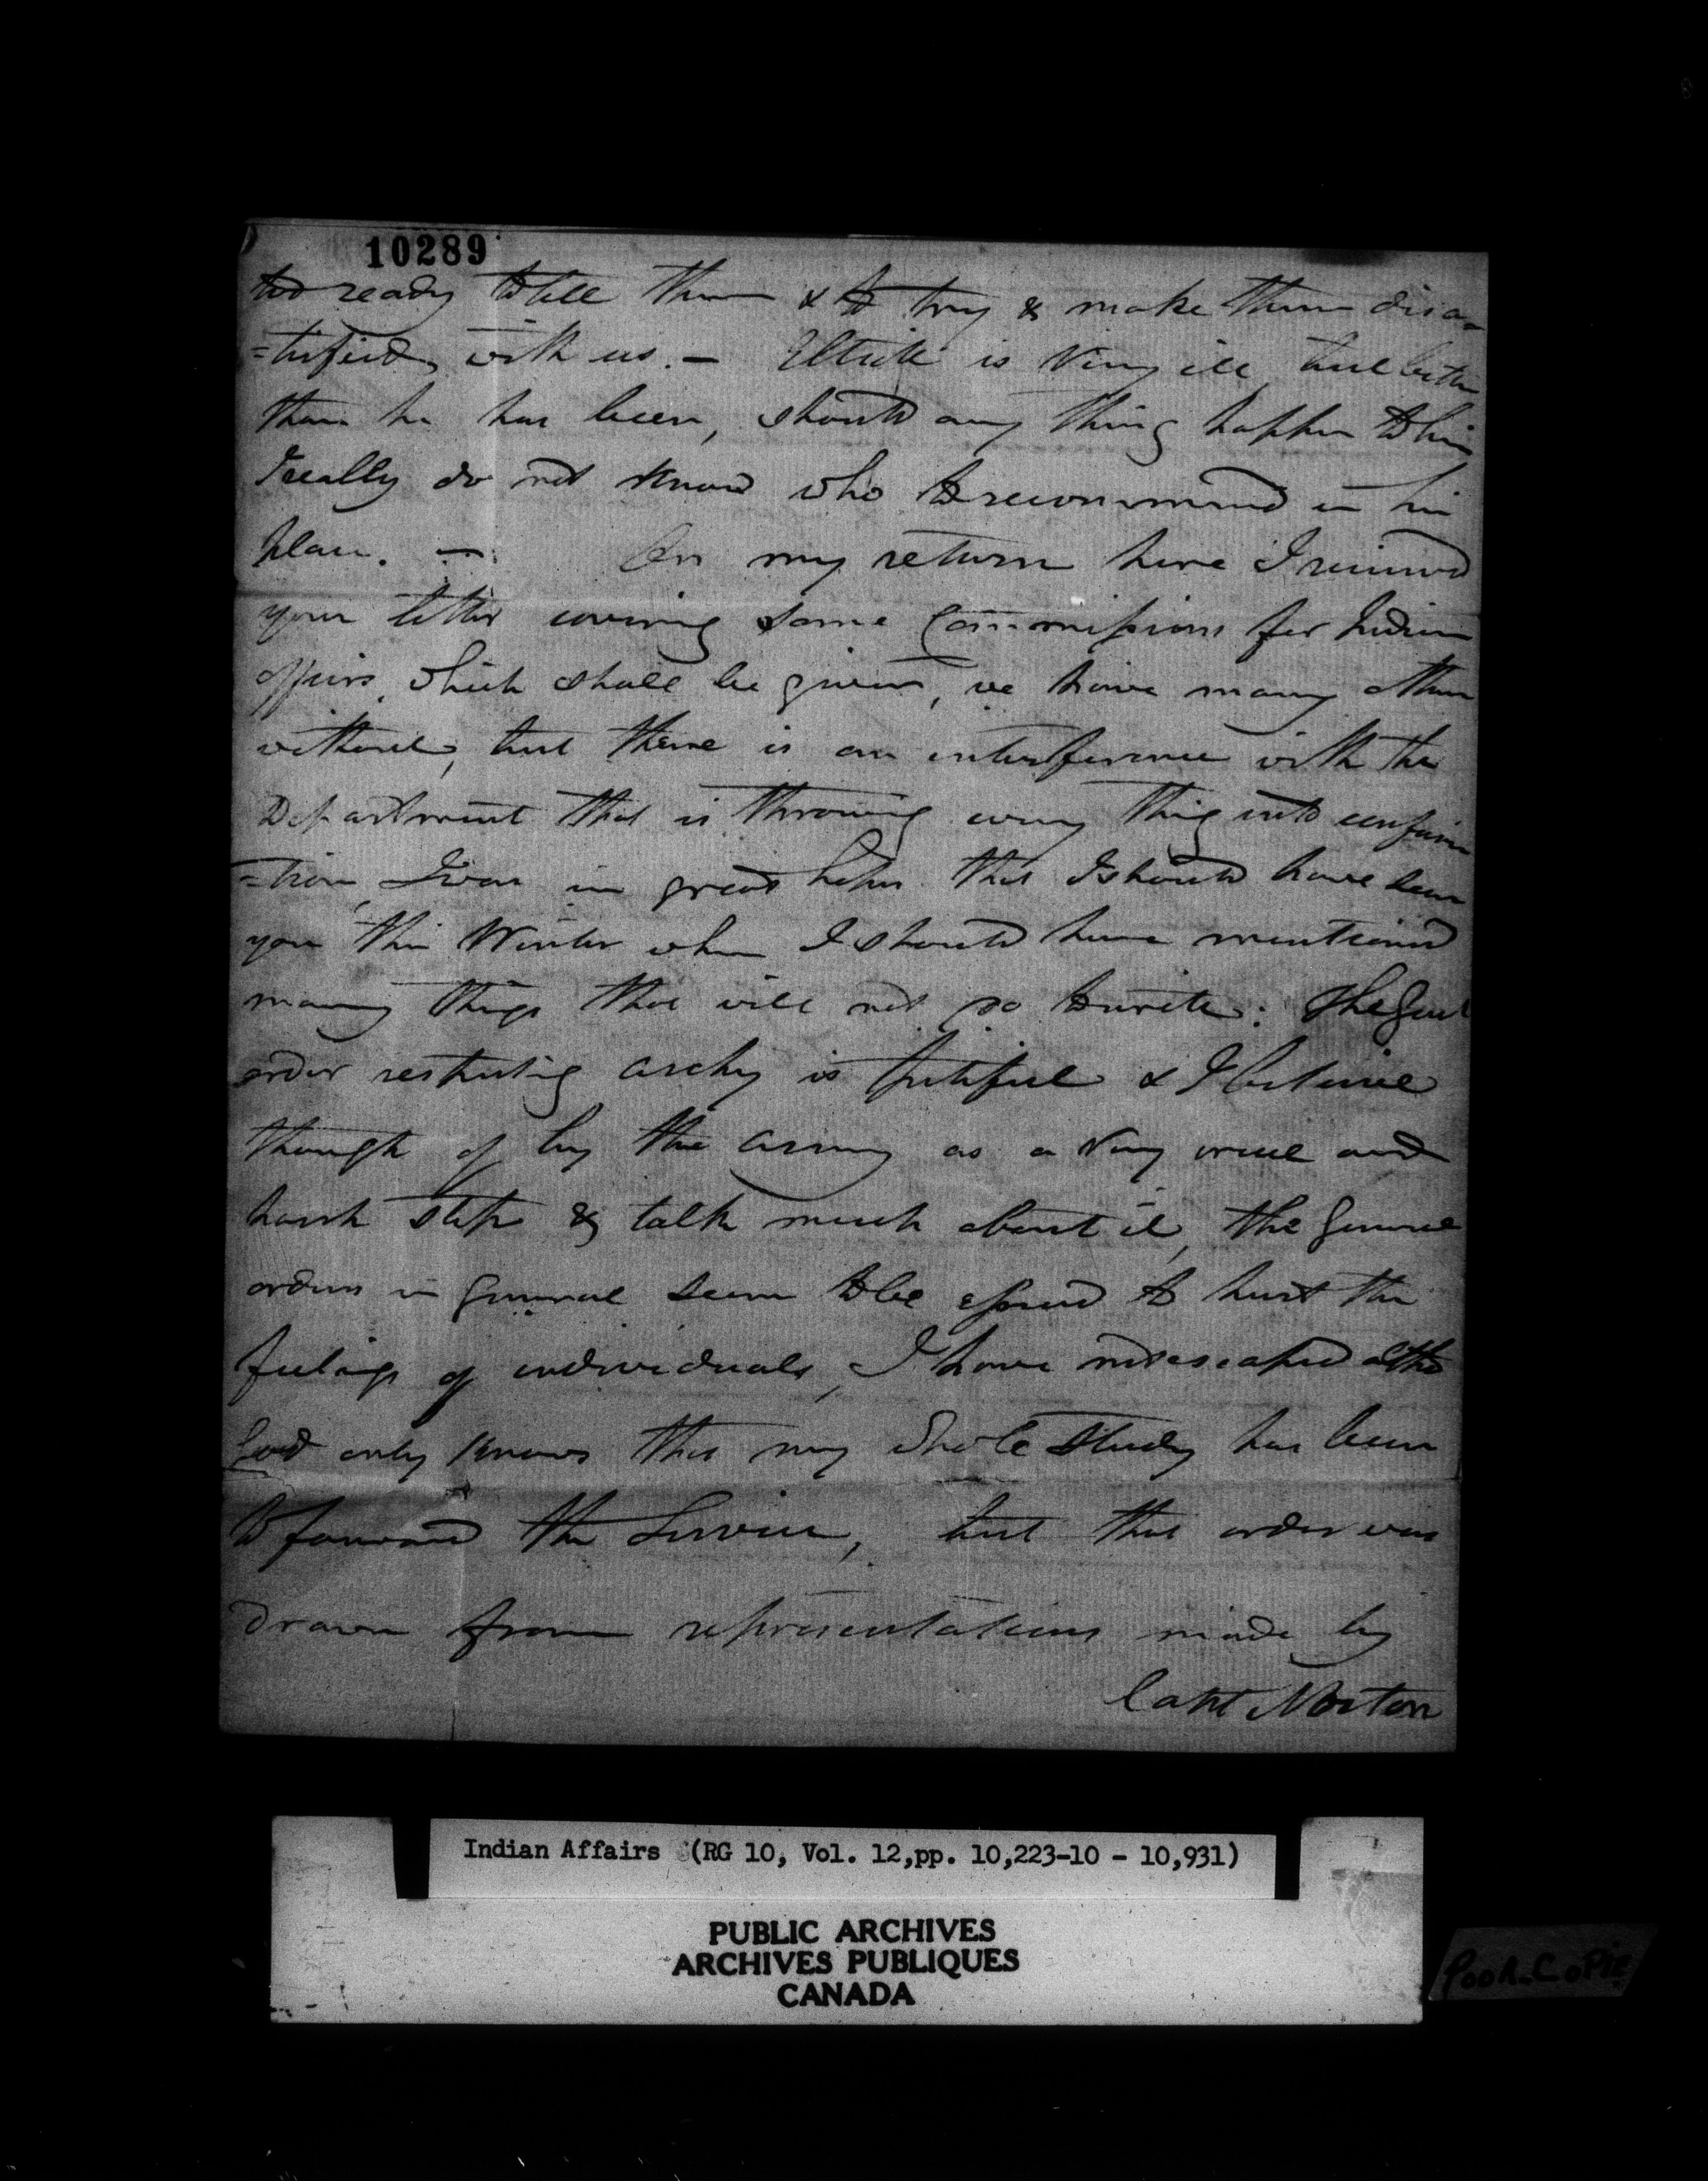 10289
too ready to tell them & to try & make them disa=
=tisfied with us. — is Very ill but better
than he has been, should any thing happen to him
I really do not know who to recommend in his
place. — On my return here I received
your letter covering some Commissions for Indian
officers, which shall be given, we have many others
without, but there is an interference with the
Department that is throwing every thing into
=tion, I was in great hopes that I should have seen
you this Winter when I should have mentioned
many things that will not do to write: The Genl
order is & I believe
thought of by the army as a Very cruel and
harsh step & talk much about it, the General
orders in General seem to be to hurt the
feelings of individuals, I have not escaped altho
God only knows that my whole Study has been
to forward the Service, but that order was
drawn from representations made by
Capt Norton
Indian Affairs (RG 10, Vol. 12,pp. 10,223-10 - 10,931)
PUBLIC ARCHIVES
ARCHIVES PUBLIQUES
CANADA
Poor Copie